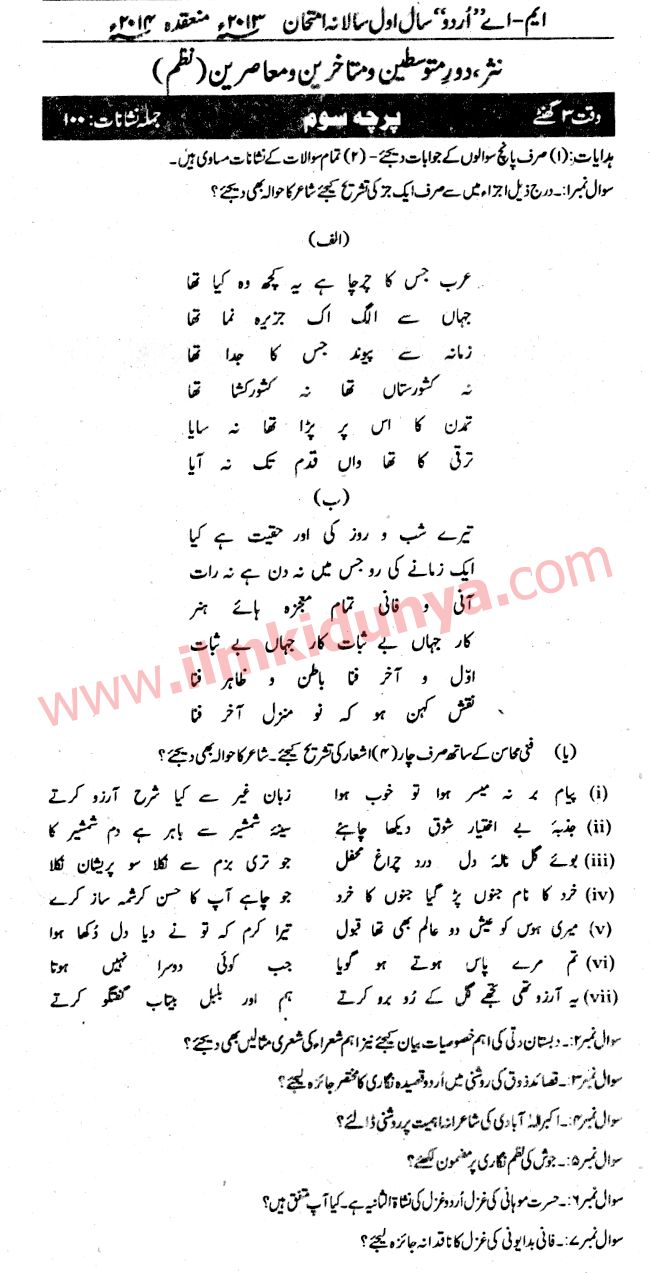 ایم-اے "اُردو" سال اول سالانہ امتحان ۲۰۱۳ء منعقدہ ۲۰۱۴ء
نثر، دورِ متوسطین و متاخرین و معاصرین (نظم)
وقت ۳ گھنٹے پرچہ سوم جملہ نشانات: ۱۰۰
ہدایات: (۱) صرف پانچ سوالوں کے جوابات دیجئے - (۲) تمام سوالات کے نشانات مساوی ہیں۔
سوال نمبر۱:۔ درج ذیل اجزاء میں سے صرف ایک جز کی تشریح کیجئے شاعر کا حوالہ بھی دیجئے؟
(الف)
عرب جس کا چرچا ہے یہ کچھ وہ کیا تھا
جہاں سے الگ اک جزیرہ نما تھا
زمانہ سے پیوند جس کا جدا تھا
نہ کشورستاں تھا نہ کشور کشا تھا
تمدن کا اس پر پڑا تھا نہ سایا
ترقی کا تھا واں قدم تک نہ آیا
(ب)
تیرے شب و روز کی اور حقیت ہے کیا
ایک زمانے کی رو جس میں نہ دن ہے نہ رات
آنی و فانی تمام معجزہ ہائے ہنر
کار جہاں بے ثبات کار جہاں بے ثبات
اوّل و آخر فنا باطن و ظاہر فنا
نقش کہن ہو کہ نو منزل آخر فنا
www.ilmkidunya.com
(یا) فنی محاسن کے ساتھ صرف چار (۴) اشعار کی تشریح کیجئے۔ شاعر کا حوالہ بھی دیجئے؟
(i) پیام بر نہ میسر ہوا تو خوب ہوا زبان غیر سے کیا شرح آرزو کرتے
(ii) جذبۂ بے اختیار شوق دیکھا چاہئے سینۂ شمشیر سے باہر ہے دم شمشیر کا
(iii) بوئے گل نالۂ دل درد چراغ محفل جو تری بزم سے نکلا سو پریشان نکلا
(iv) خرد کا نام جنوں پڑ گیا جنوں کا خرد جو چاہے آپ کا حسن کرشمہ ساز کرے
(v) میری ہوس کو عیش دو عالم بھی تھا قبول تیرا کرم کہ تو نے دیا دل دُکھا ہوا
(vi) تم مرے پاس ہوتے ہو گویا جب کوئی دوسرا نہیں ہوتا
(vii) یہ آرزو تھی تجھے گل کے رُو برو کرتے ہم اور بلبل بیتاب گفتگو کرتے
سوال نمبر۲:۔ دبستان دلّی کی اہم خصوصیات بیان کیجئے نیز اہم شعراء کی شعری مثالیں بھی دیجئے؟
سوال نمبر۳:۔ قصائد ذوق کی روشنی میں اُردو قصیدہ نگاری کا مختصر جائزہ لیجئے؟
سوال نمبر۴:۔ اکبر الہٰ آبادی کی شاعرانہ اہمیت پر روشنی ڈالئے؟
سوال نمبر۵:۔ جوش کی نظم نگاری پر مضمون لکھئے؟
سوال نمبر۶:۔ حسرت موہانی کی غزل اُردو غزل کی نشاۃ الثانیہ ہے۔ کیا آپ متفق ہیں؟
سوال نمبر۷:۔ فانی بدایونی کی غزل کا ناقدانہ جائزہ لیجئے؟